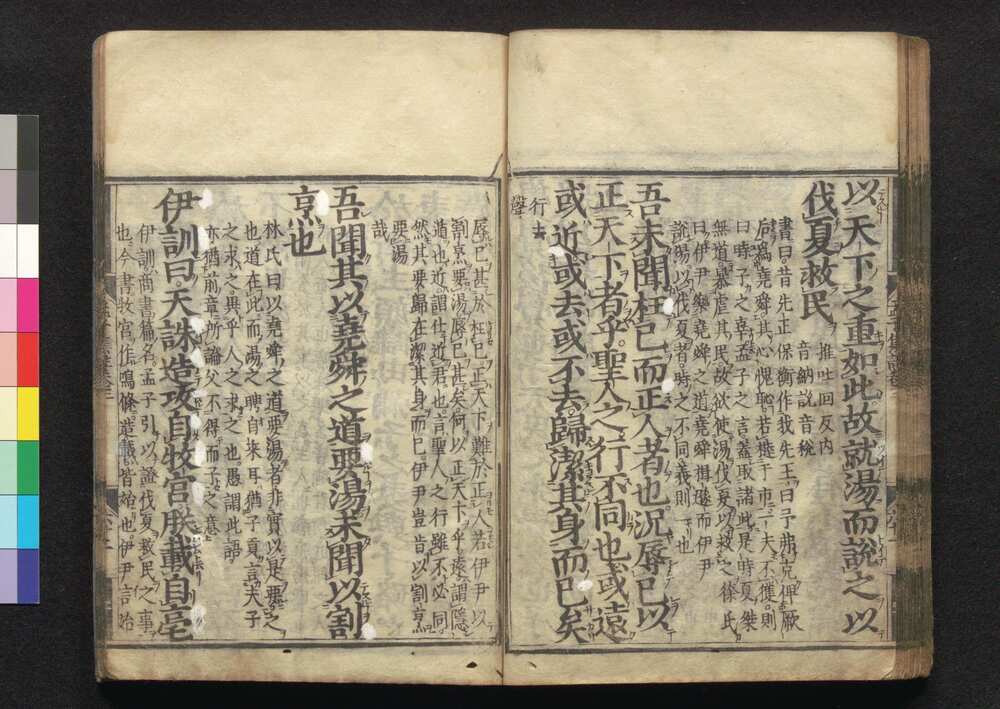 以天下之重如此故就湯而說之以
伐夏救民
推吐回反內
音納說音稅
書曰昔先正保衡作我先王曰予弗克俾厥
后爲堯舜其心愧恥若撻于市一夫不獲則
曰時予之辜孟子之言蓋取諸此是時夏桀
無道暴虐其民故欲使湯伐夏以救之徐氏
曰伊尹樂堯舜之道堯舜揖遜而伊尹
說湯以伐夏者時之不同義則一也
吾未聞枉己而正人者也況辱己以
正天下者乎聖人之行不同也或遠
或近或去或不去歸潔其身而已矣
行去
聲
辱己甚於枉己正天下難於正人若伊尹以
割烹要湯辱己甚矣何以正天下乎遠謂隱
遁也近謂仕近君也言聖人之行雖不必同
然其要歸在潔其身而已伊尹豈肯以割烹
要湯
哉
吾聞其以堯舜之道要湯未聞以割
烹也
林氏曰以堯舜之道要湯者非實以是要之
也道在此而湯之聘自來耳猶子貢言夫子
之求之異乎人之求之也愚謂此語
亦猶前章所論父不得而子之意
伊訓曰天誅造攻自牧宮朕載自亳
伊訓商書篇名孟子引以證伐夏救民之事
也今書牧宮作鳴條造載皆始也伊尹言始